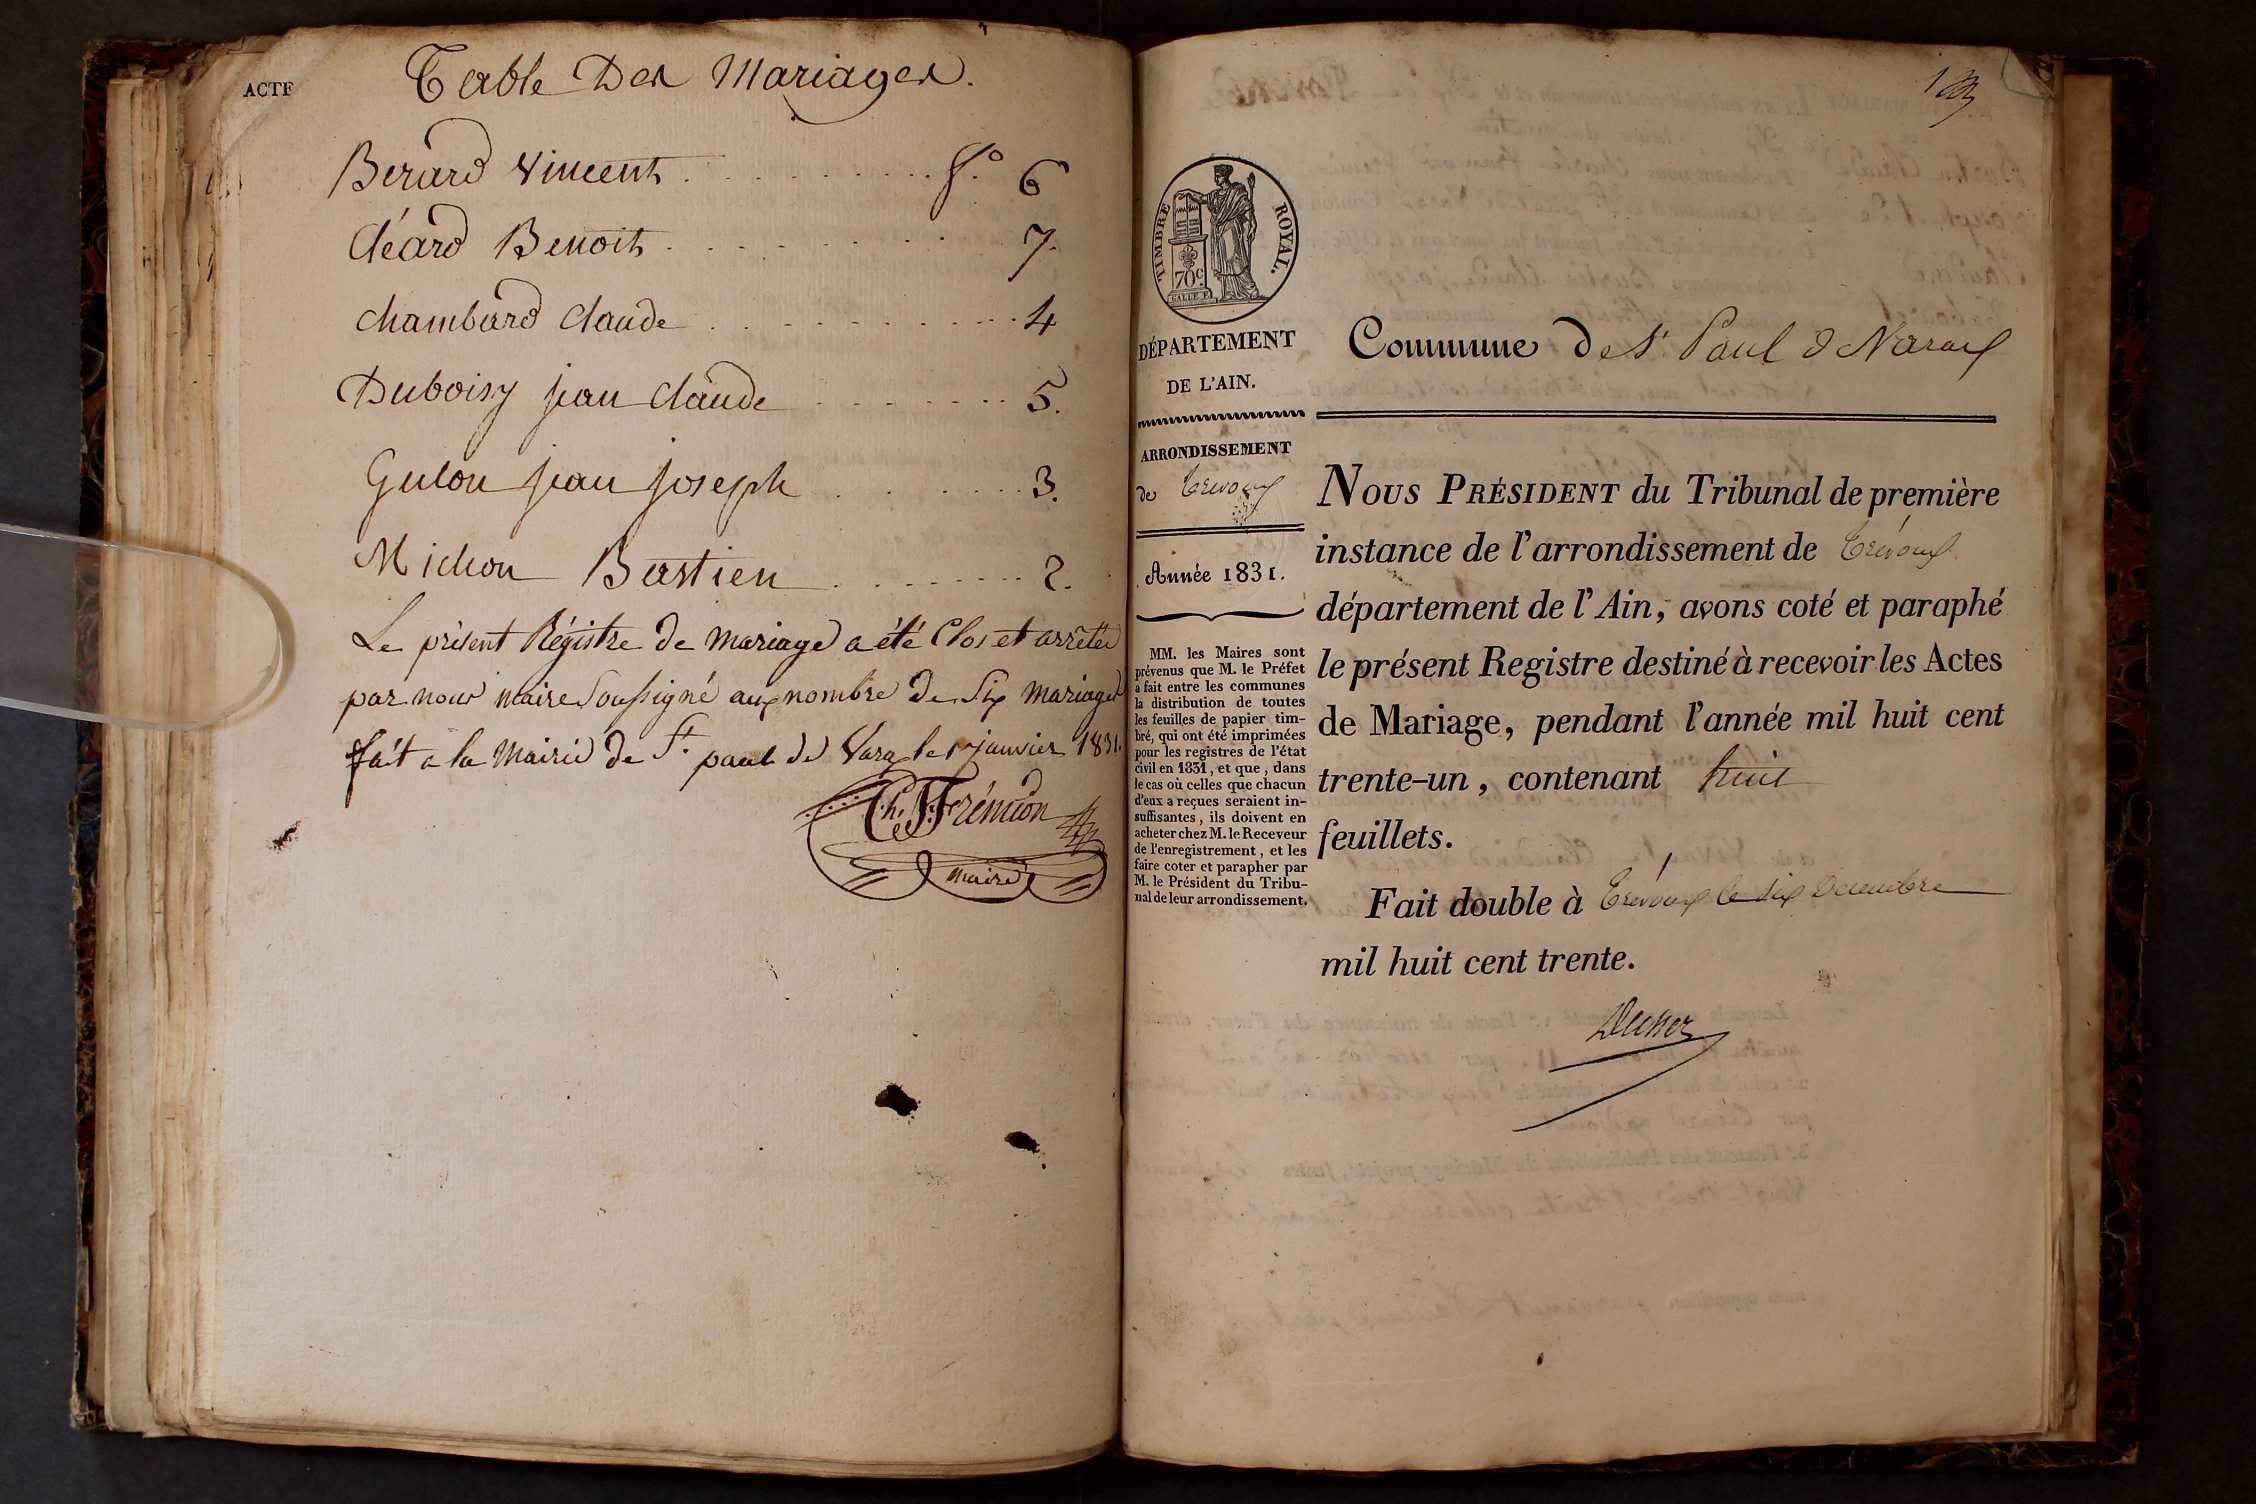 ACTE
Table Des Mariages.
Berard Vincent . . . . . . . . . . f.° 6
Cléard Benoit . . . . . . . . . . 7.
Chambard Claude . . . . . . . . . . 4
Duboisy jean Claude . . . . . . . . 5.
Gulon jean joseph . . . . . . . 3.
Michon Bastien . . . . . . . . 2.
Le présent Régistre de mariage a été Clos et arrêtée
par nous maire Soussigné aux nombre de Six mariages
fait a la Mairie de St. paul de Varax le 1er janvier 1831.
Ch. F. Frémion
maire
1
TIMBRE ROYAL.
70c.
DÉPARTEMENT
DE L'AIN.
ARRONDISSEMENT
de Trévoux
Année 1831.
MM. les Maires sont
prévenus que M. le Préfet
a fait entre les communes
la distribution de toutes
les feuilles de papier tim-
bré, qui ont été imprimées
pour les registres de l'état
civil en 1831, et que, dans
le cas où celles que chacun
d'eux a reçues seraient in-
suffisantes, ils doivent en
acheter chez M. le Receveur
de l'enregistrement, et les
faire coter et parapher par
M. le Président du Tribu-
nal de leur arrondissement.
Commune de St Paul de Varax
NOUS PRÉSIDENT du Tribunal de première
instance de l'arrondissement de Trévoux
département de l'Ain, avons coté et paraphé
le présent Registre destiné à recevoir les Actes
de Mariage, pendant l'année mil huit cent
trente-un, contenant huit
feuillets.
Fait double à Trévoux le six Decembre
mil huit cent trente.